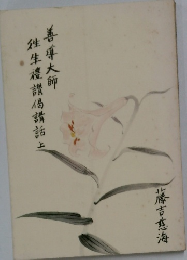 善導大師
往生禮讃偈講話 上
藤吉慈海